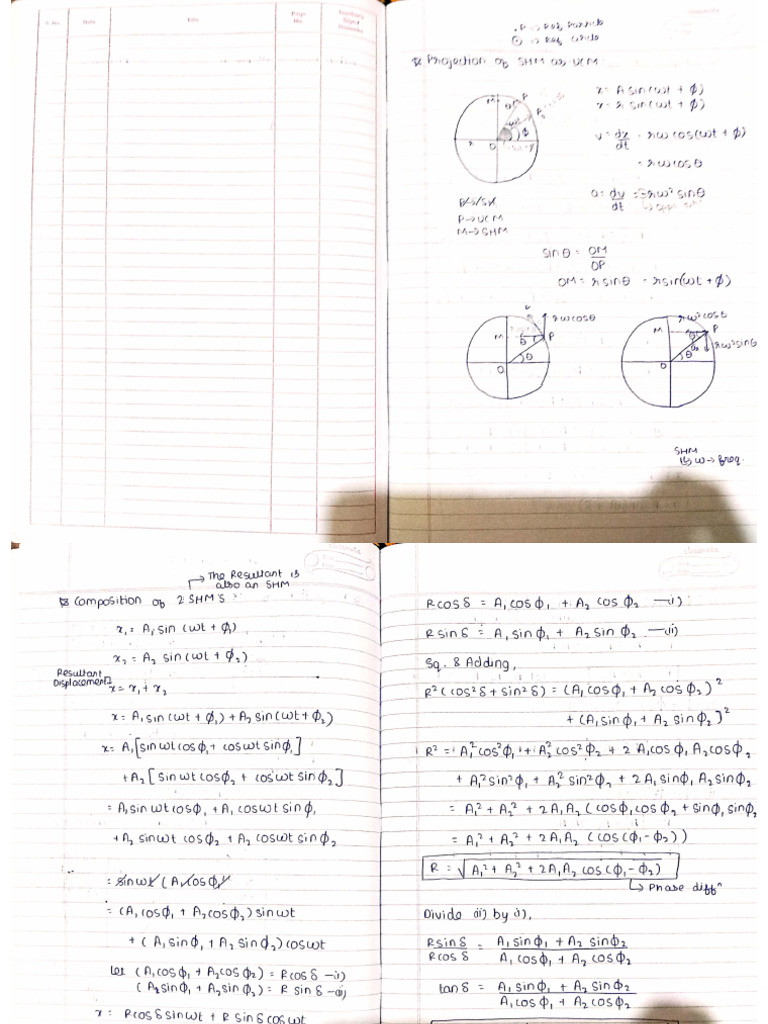 S. No.
Date
Title
Page No.
Teacher's Sign / Remarks
P → Ref Particle
⊙ → Ref Circle
Projection of SHM as UCM
x = A sin(wt + ϕ)
x = r sin(wt + ϕ)
v = dx/dt = rw cos(wt + ϕ)
= rw cosθ
a = dv/dt = -rw² sinθ
M
P
θ
ϕ
r
O
P → UCM
M → SHM
sinθ = OM/OP
OM = r sinθ = r sin(wt + ϕ)
v
rw cosθ
M
θ
P
O
θ
rw² cosθ
M
θ
P
rw² sinθ
O
θ
SHM
w → freq.
→ The Resultant is
also an SHM
Composition of 2 SHM's
x₁ = A₁ sin (wt + ϕ₁)
x₂ = A₂ sin (wt + ϕ₂)
Resultant
Displacement
x = x₁ + x₂
x = A₁ sin (wt + ϕ₁) + A₂ sin (wt + ϕ₂)
x = A₁ [sin wt cos ϕ₁ + cos wt sin ϕ₁]
+ A₂ [sin wt cos ϕ₂ + cos wt sin ϕ₂]
= A₁ sin wt cos ϕ₁ + A₁ cos wt sin ϕ₁
+ A₂ sin wt cos ϕ₂ + A₂ cos wt sin ϕ₂
= sin wt (A₁ cos ϕ₁
= (A₁ cos ϕ₁ + A₂ cos ϕ₂) sin wt
+ (A₁ sin ϕ₁ + A₂ sin ϕ₂) cos wt
let (A₁ cos ϕ₁ + A₂ cos ϕ₂) = R cos δ —i)
(A₁ sin ϕ₁ + A₂ sin ϕ₂) = R sin δ —ii)
x = R cos δ sin wt + R sin δ cos wt
R cos δ = A₁ cos ϕ₁ + A₂ cos ϕ₂ —i)
R sin δ = A₁ sin ϕ₁ + A₂ sin ϕ₂ —ii)
Sq. & Adding,
R² (cos² δ + sin² δ) = (A₁ cos ϕ₁ + A₂ cos ϕ₂)²
+ (A₁ sin ϕ₁ + A₂ sin ϕ₂)²
R² = A₁² cos² ϕ₁ + A₂² cos² ϕ₂ + 2 A₁ cos ϕ₁ A₂ cos ϕ₂
+ A₁² sin² ϕ₁ + A₂² sin² ϕ₂ + 2 A₁ sin ϕ₁ A₂ sin ϕ₂
= A₁² + A₂² + 2 A₁ A₂ (cos ϕ₁ cos ϕ₂ + sin ϕ₁ sin ϕ₂
= A₁² + A₂² + 2 A₁ A₂ (cos (ϕ₁ - ϕ₂))
R = √(A₁² + A₂² + 2 A₁ A₂ cos (ϕ₁ - ϕ₂))
→ Phase diffⁿ
Divide ii) by i),
R sin δ / R cos δ = (A₁ sin ϕ₁ + A₂ sin ϕ₂) / (A₁ cos ϕ₁ + A₂ cos ϕ₂)
tan δ = (A₁ sin ϕ₁ + A₂ sin ϕ₂) / (A₁ cos ϕ₁ + A₂ cos ϕ₂)